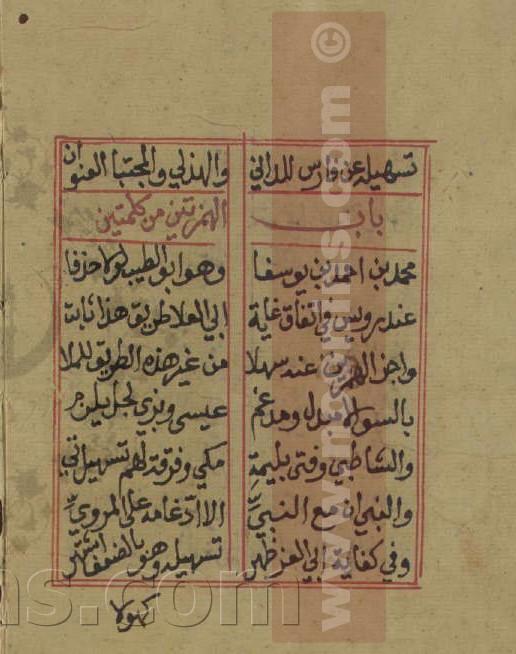 تسهيله عن فارس للداني والهذلي والمجتبا العنوان
باب الهمزتين من كلمتين
محمد بن احمد بن يوسفا وهو ابو الطيب لولا حذفا
عند رويس في اتفاق غاية ابي العلا طريق هذا ثابت
واجز الهمزين عند سهلا من غير هذه الطريق للملا
بالسو الا مبدل ومدغم عيسى ويزي
والشاطبي وفتى بليمة مكي وفرقة لهم تسهيل
والنبي ان مع النبيِّ الا ادّغامه على المرويِّ
وفي كفاية ابي العز ظهر تسهيله وهو بالضعف اشتهر
كهولا
©